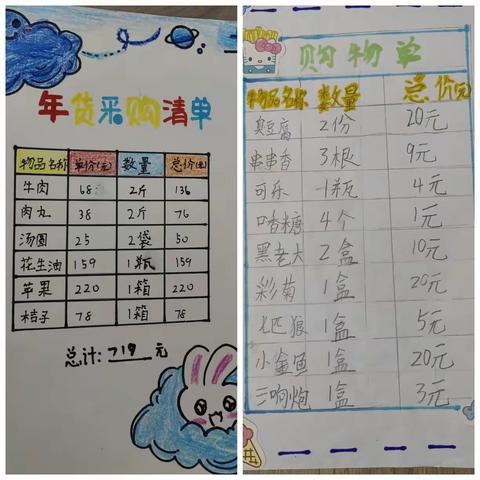 年货采购清单
物品名称 单价(元) 数量 总价(元)
牛肉 68 2斤 136
肉丸 38 2斤 76
汤圆 25 2袋 50
花生油 159 1瓶 159
苹果 220 1箱 220
桔子 78 1箱 78
总计: 719 元
购物单
物品名称 数量 总价(元)
臭豆腐 2份 20元
串串香 3根 9元
可乐 1瓶 4元
口香糖 4个 1元
黑老大 2盒 10元
彩菊 1盒 20元
七匹狼 1盒 5元
小金鱼 1盒 20元
三响炮 1盒 3元